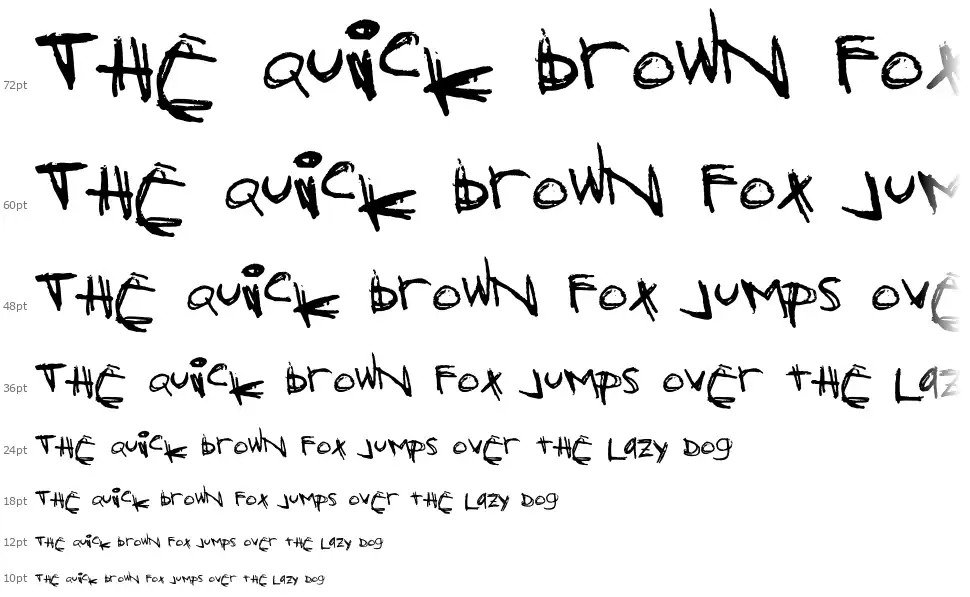 72pt THE QUiCK brOWN FOX
60pt THE QUiCK brOWN FOX JUM
48pt THE QUiCK brOWN FOX JUMPS OVE
36pt THE QUiCK brOWN FOX JUMPS OVEr tHE Laz
24pt THE QUiCK brOWN FOX JUMPS OVEr tHE LaZy DOg
18pt THE QUiCK brOWN FOX JUMPS OVEr tHE LaZy DOg
12pt THE QUiCK brOWN FOX JUMPS OVEr tHE LaZy DOg
10pt THE QUiCK brOWN FOX JUMPS OVEr tHE LaZy DOg